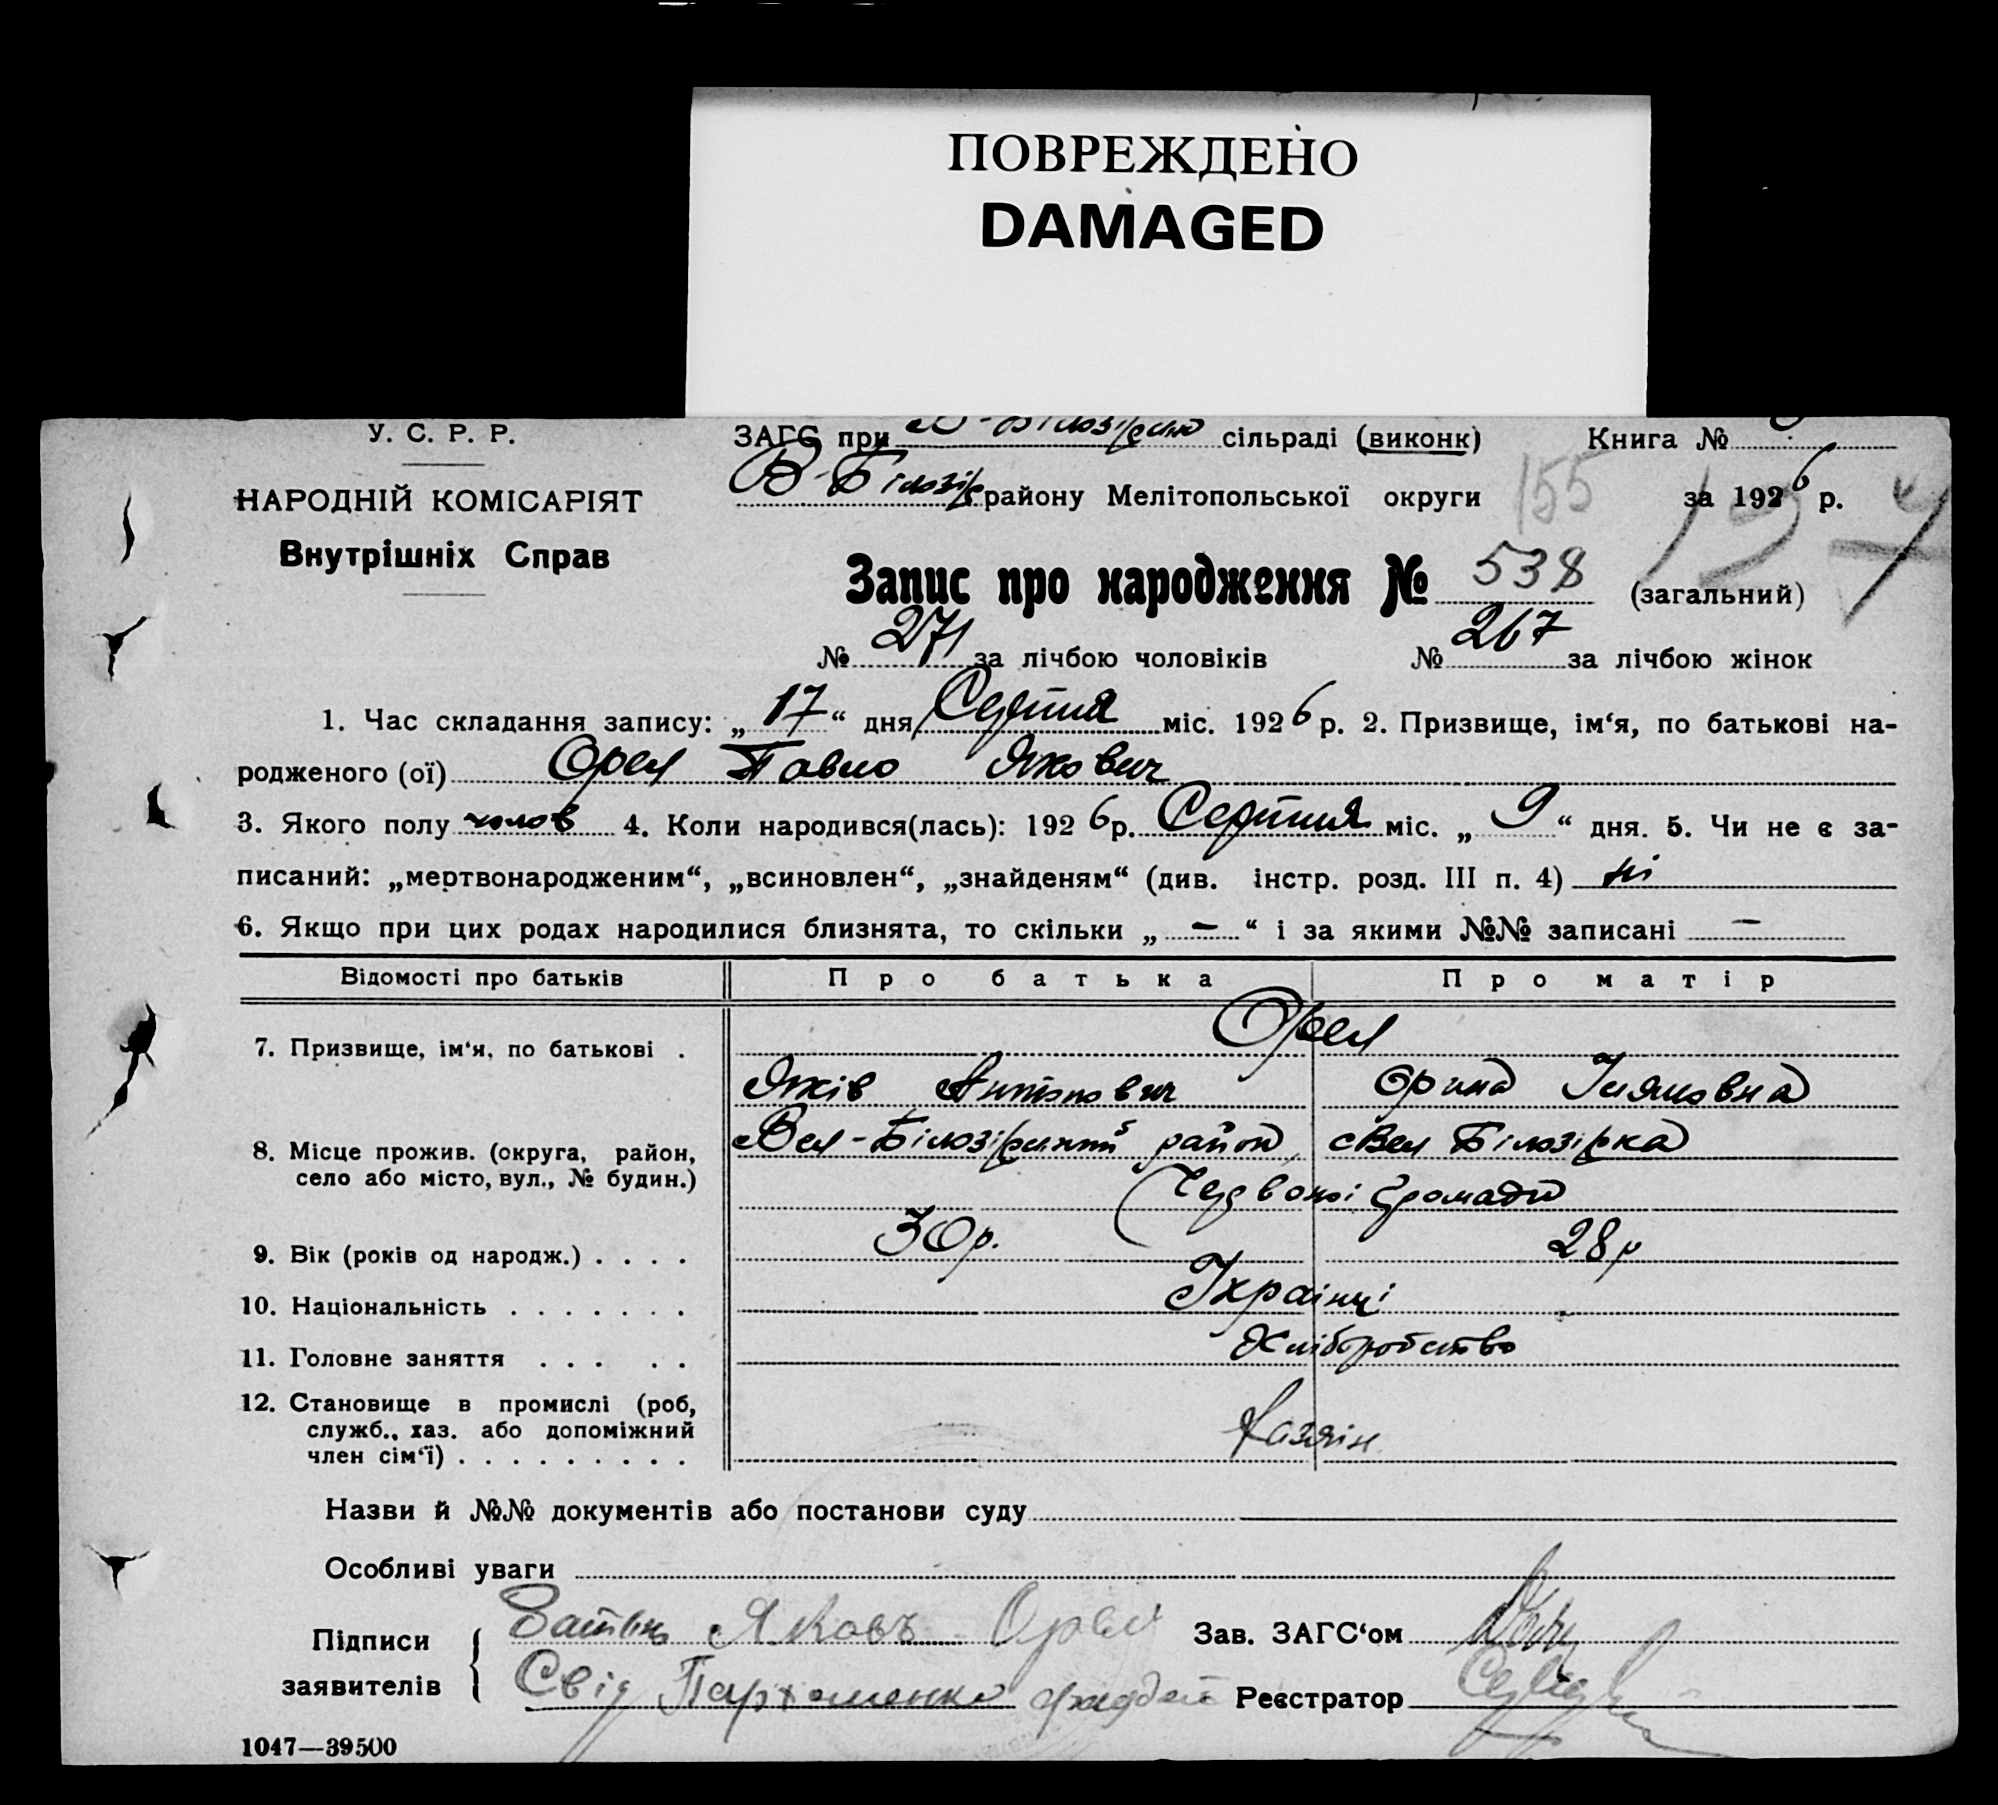 ПОВРЕЖДЕНО
DAMAGED
У. С. Р. Р.
НАРОДНІЙ КОМІСАРІЯТ
Внутрішніх Справ
ЗАГС при В-Білозірськ сільраді (виконк) Книга №
В-Білозір району Мелітопольської округи 155 за 1926 р. 127
Запис про народження № 538 (загальний)
№ 271 за лічбою чоловіків № 267 за лічбою жінок
1. Час складання запису: „17“ дня Серпня міс. 1926 р. 2. Призвище, ім‘я, по батькові на-
родженого (ої) Орел Павло Якович
3. Якого полу чолов 4. Коли народився(лась): 1926 р. Серпня міс. „9“ дня. 5. Чи не є за-
писаний: „мертвонародженим“, „всиновлен“, „знайденям“ (див. інстр. розд. III п. 4) ні
6. Якщо при цих родах народилися близнята, то скільки „ — “ і за якими №№ записані —
Відомості про батьків Про батька Про матір
Орел
7. Призвище, ім‘я, по батькові .
Яків Антонович Орина
8. Місце прожив. (округа, район, Вел-Білозірський район, с Вел Білозірка
село або місто, вул., № будин.) Червоної Громади
9. Вік (років од народж.) . . . . 30 р. 28 р
10. Національність . . . . . . . Українці
11. Головне заняття . . . . . Хліборобство
12. Становище в промислі (роб, служб., хаз. або допоміжний член сім‘ї) . . . . . . . . . Хазяїн
Назви й №№ документів або постанови суду
Особливі уваги
Підписи заявителів
Яковъ Орел
Свід Пархоменко
Зав. ЗАГС‘ом
Реєстратор
1047—39500